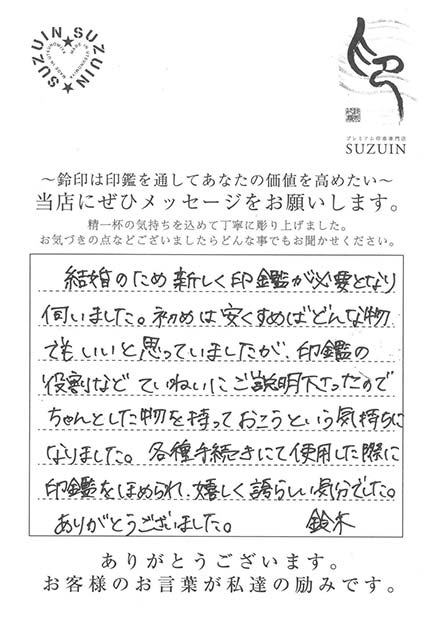 SUZUIN★SUZUIN★
MADE IN UTSUNOMIYA
印
プレミアム印章専門店
SUZUIN
～鈴印は印鑑を通してあなたの価値を高めたい～
当店にぜひメッセージをお願いします。
精一杯の気持ちを込めて丁寧に彫り上げました。
お気づきの点などございましたらどんな事でもお聞かせください。
結婚のため新しく印鑑が必要となり
伺いました。初めは安くすめばどんな物
でもいいと思っていましたが、印鑑の
役割などていねいにご説明下さったので
ちゃんとした物を持っておこうという気持ちに
なりました。各種手続きにて使用した際に
印鑑をほめられ、嬉しく誇らしい気分でした。
ありがとうございました。 鈴木
ありがとうございます。
お客様のお言葉が私達の励みです。